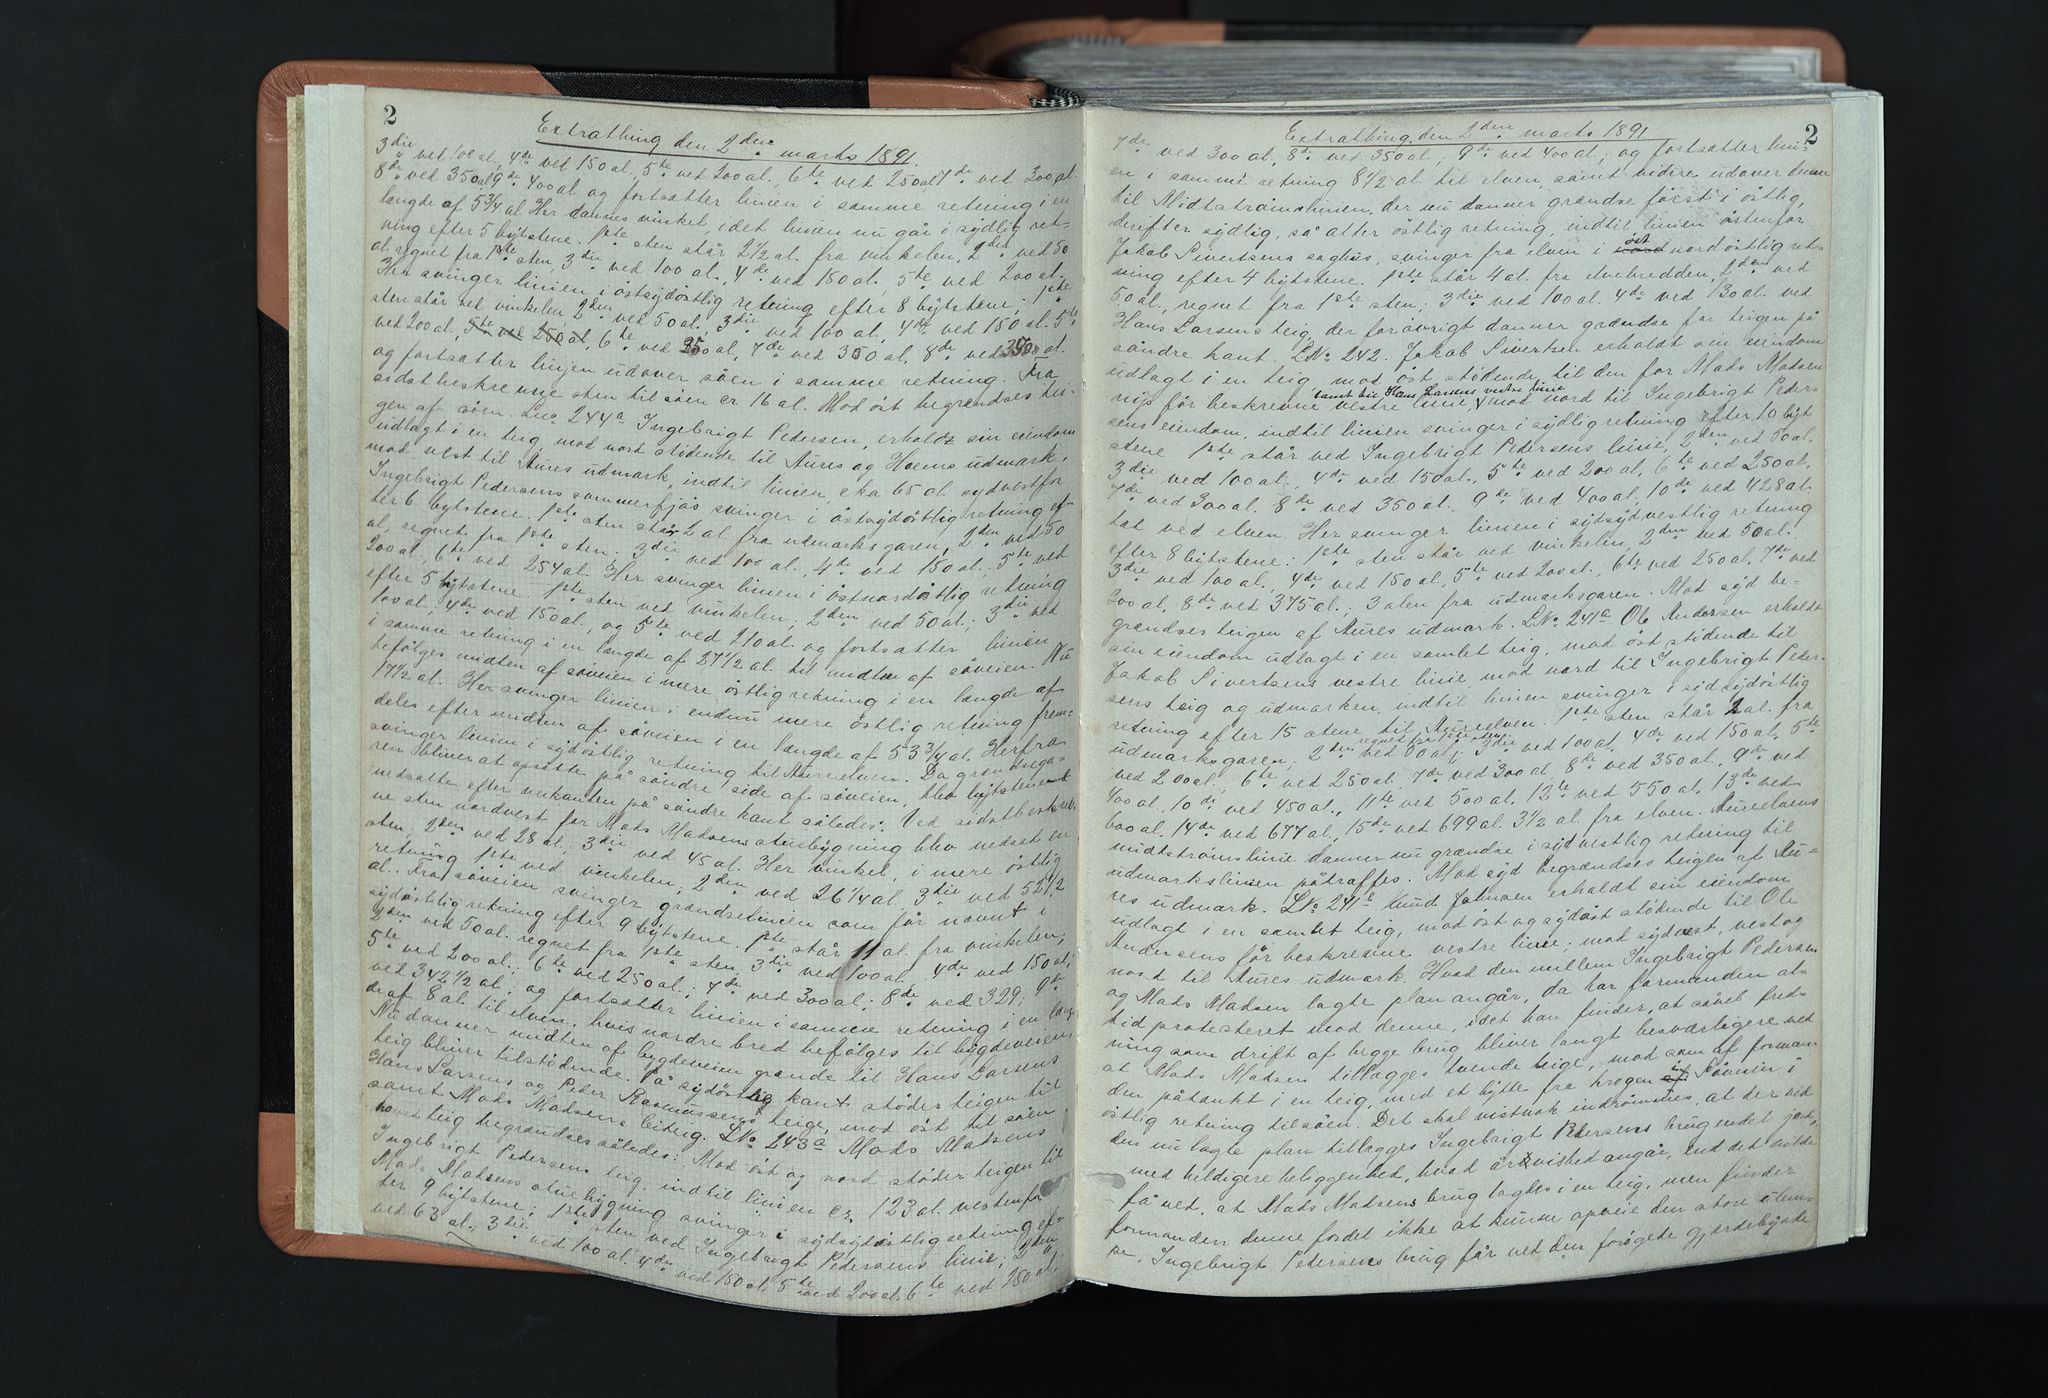 2
Extrathing den 2den marts 1891.
3die ved 100 al. 4de ved 150 al., 5te ved 200 al., 6te ved 250 al 7de ved 300 al.
8de ved 350 al 9de 400 al og fortsætter linien i samme retning i en
længde af 5 3/4 al Her dannes vinkel, idet linien nu går i sydlig ret-
ning efter 5 bytstene. 1ste sten står 2 1/2 al. fra vinkelen, 2den ved 50
al. regnet fra 1ste sten, 3die ved 100 al., 4de ved 150 al., 5te ved 200 al.
Her svinger linien i østsydøstlig retning efter 8 bytstene; 1ste
sten står ved vinkelen 2den ved 50 al., 3die ved 100 al., 4de ved 150 al. 5te
ved 200 al., 5te ved 250 al, 6te ved 250 al, 7de ved 300 al, 8de ved 350 al.
og fortsætter linjen udover søen i samme retning. Fra
sidst beskrevne sten til søen er 16 al. Mod øst begrændses tei-
gen af søen. Lno 244a Ingebrigt Pedersen, erholdt sin eiendom
udlagt i en teig mod nort stødende til Aures og Hoems udmark,
mod vest til Aures udmark, indtil linien, cka 65 al. sydvest for
Ingebrigt Pedersens sommerfjøs svinger i østsydøstlig retning ef-
ter 6 bytstene. 1ste sten står 2 al. fra udmarksgaren, 2den ved 50
al, regnet fra 1ste sten. 3die ved 100 al., 4te ved 150 al., 5te ved
200 al., 6te ved 254 al. Her svinger linien i østnordøstlig retning
efter 5 bytstene. 1ste sten ved vinkelen, 2den ved 50 al.; 3die ved
100 al., 4de ved 150 al., og 5te ved 210 al. og fortsætter linien
i samme retning i en længde af 27 1/2 al. til midten af søveien. Nu
befølges midten af søveien i mere østlig retning i en længde af
17 1/2 al. Her svinger linien i endnu mere østlig retning frem-
deles efter midten af søveien i en længde af 53 3/4 al. Herfra
svinger linien i sydøstlig retning til Aureelven. Da grændsega-
ren bliver at opsette på søndre side af søveien, blev bytstenene
nedsatte efter veikanten på søndre kant således: Ved sidst beskrev-
ne sten nordvest for Mads Madsens stuebygning blev nedsat en
sten, 2den ved 28 al., 3die ved 45 al. Her vinkel, i mere østlig
retning 1ste ved vinkelen, 2den ved 26 1/4 al, 3die ved 52 1/2
al. Fra søveien svinger grændselinien som før nævnt i
sydøstlig retning efter 9 bytstene. 1ste står 11 al. fra vinkelen;
2den ved 50 al. regnet fra 1ste sten, 3die ved 100 al. 4de ved 150 al,
5te ved 200 al.; 6te ved 250 al.; 7de ved 300 al; 8de ved 329; 9de
ved 342 1/2 al; og fortsætter linien i samme retning i en læng-
de af 8 al. til elven, hvis nordre bred befølges til bygdeveien.
Nu danner midten af bygdeveien grænde til Hans Larsens
teig bliver tilstødende. På sydøstlig kant støder teigen til
Hans Larsens og Peder Rasmussens teige, mod øst til søen
samt Mads Madsens biteig. LNo 243a Mads Madsens
hovedteig begrændses således: Mod øst og nord støder teigen til
Ingebrigt Pedersens teig. indtil linien ca. 123 al. vestenfor
Mads Madsens stuebygning svinger i sydsydøstlig retning ef-
ter 9 bytstene; 1ste sten ved Ingebrigt Pedersens linie; 2den
ved 63 al., 3die ved 100 al. 4de ved 150 al. 5te ved 200 al. 6te ved 250 al.,
2
Extrathing den 2den marts 1891
7de ved 300 al, 8de ved 350 al.; 9de ved 400 al; og fortsætter lini-
en i samme retning 8 1/2 al. til elven, samt videre udover denne
til Midtstrømslinien, der nu danner grændse først i østlig,
derefter sydlig, så atter østlig retning, indtil linien østenfor
Jakob Sivertsens saghus, svinger fra elven i nord øst nordøstlig ret-
ning efter 4 bytstene. 1ste står 4 al. fra elvebredden, 2den ved
50 al., regnet fra 1ste sten; 3die ved 100 al. 4de ved 130 al. ved
Hans Larsens teig, der forøvrigt danner grændse for teigen på
søndre kant. LNo 242. Jakob Sivertsen erholdt sin eiendom
udlagt i en teig mod øst stødende til den for Mads Madsen
samt til Hans Larsens vestre linie
nys før beskrevne vestre linie, mod nord til Ingebrigt Peder-
sens eiendom, indtil linien svinger i sydlig retning efter 10 byt
stene 1ste står ved Ingebrigt Pedersens linie, 2den ved 50 al.
3die ved 100 al., 4de ved 150 al., 5te ved 200 al, 6te ved 250 al.
7de ved 300 al. 8de ved 350 al. 9de ved 400 al. 10de ved 428 al.
tæt ved elven. Her svinger linien i sydsydvestlig retning
efter 8 bytstene: 1ste sten står ved vinkelen, 2den ved 50 al.
3die ved 100 al., 4de ved 150 al., 5te ved 200 al., 6te ved 250 al. 7de ved
300 al. 8de ved 375 al.; 3 alen fra udmarksgaren. Mod syd be-
grændses teigen af Aures udmark. LNo 241a Ole Andersen erholdt
sin eiendom udlagt i en samlet teig, mod øst stødende til
Jakob Sivertsens vestre linie mod nord til Ingebrigt Peder-
sens teig og udmarken, indtil linien svinger i sydsydøstlig
retning efter 15 stene til Aureelven. 1ste sten står 2 al. fra
regnet fra 1ste sten
udmarksgaren, 2den ved 50 al; 3die ved 100 al. 4de ved 150 al, 5te
ved 200 al., 6te ved 250 al, 7de ved 300 al, 8de ved 350 al., 9de ved
400 al, 10de ved 450 al., 11te ved 500 al, 12te ved 550 al. 13de ved
600 al, 14de ved 677 al, 15de ved 699 al. 3 1/2 al. fra elven. Aureelvens
midtstrømslinie danner nu grændse i sydvestlig retning til
udmarkslinien påtræffes. Mod syd begrændses teigen af Au-
res udmark. LNo 241c Knud Johnsen erholdt sin eiendom
udlagt i en samlet teig, mod øst og sydøst stødende til Ole
Andersens før beskrevne vestre linie; mod sydvest, vest og
nord til Aures udmark. Hvad den mellem Ingebrigt Pedersen
og Mads Madsen lagte plan angår, da har formanden al-
tid protesteret mod denne, idet han finder, at såvel fred-
ning som drift af begge brug bliver langt besværligere ved
at Mads Madsen tillægges tvende teige, mod som af forman-
den påtænkt i en teig, med et bytte fra krogen i Søveien i
østlig retning til søen. Det skal vistnok indrømmes, at der ved
den nu lagte plan tillægges Ingebrigt Pedersens brug endel jord,
med heldigere beliggenhed, hvad årsvished angår, end det vilde
få ved, at Mads Madsens brug lagdes i en teig, men finder
formanden denne fordel ikke at kunne opveie den store ulem-
pe, Ingebrigt Pedersens brug får ved den forøgede gjerdebyrde